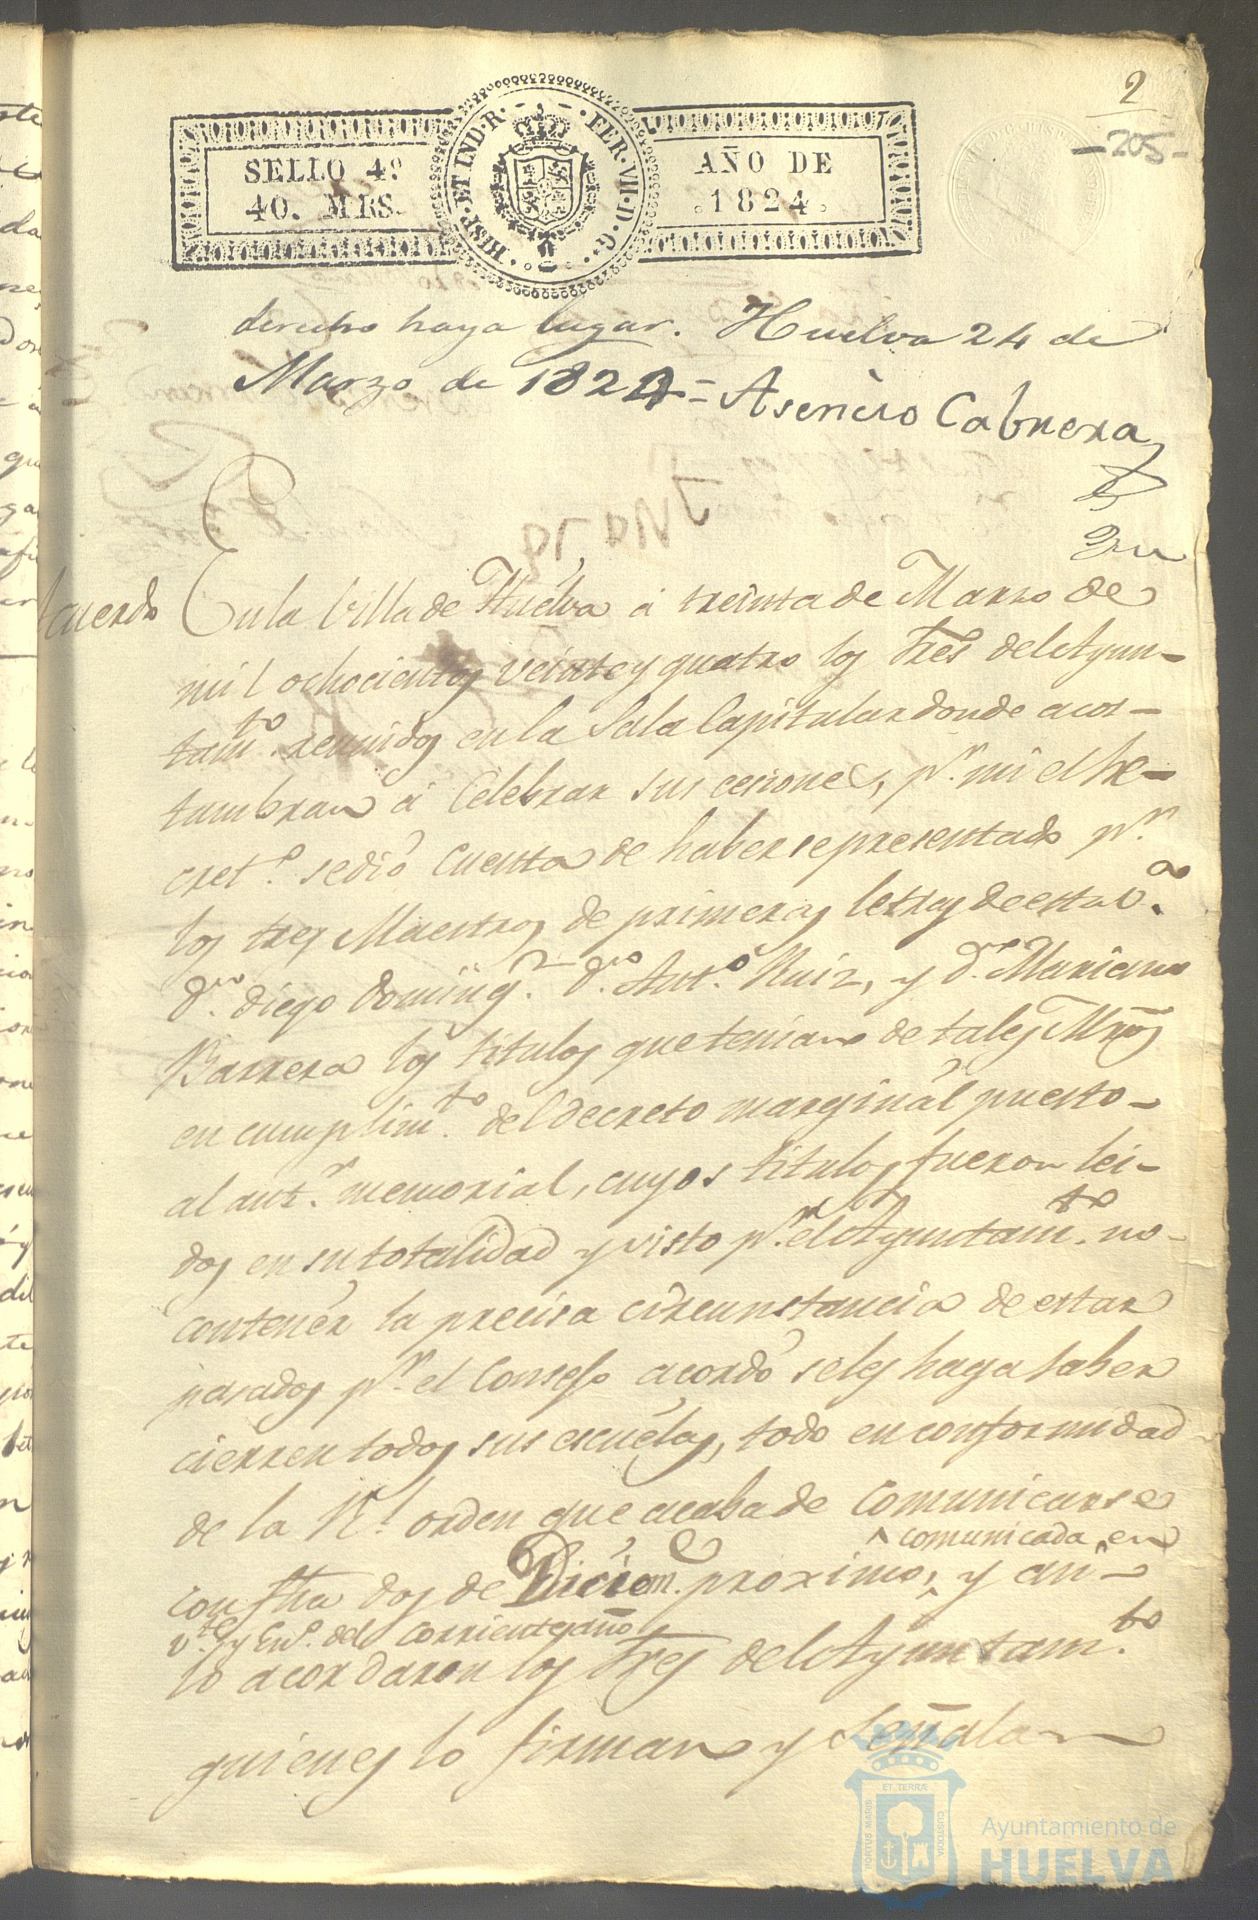 2
-205-
SELLO 4º
40. MRS.
HISP. ET IND. R. FER. VII. D. G.
AÑO DE
1824.
derecho haya lugar. Huelva 24 de
Marzo de 1824 = Asencio Cabrera
Acuerdo
En la Villa de Huelva á treinta de Marzo de
mil ochocientos veinte y quatro los Sres del Ayun-
tamto. reunidos en la Sala Capitular donde acos-
tumbran á Celebrar sus cesiones, pr. mi el Se-
creto. se dió Cuenta de haberse presentado pr.
los tres Maestros de primeras letras de esta va.
dn. diego doming.z dn. Anto. Ruiz, y dn. Mariano
Barrera los titulos que tenian de tales Mros
en cumplimto. del decreto marginal puesto-
al antr. memorial, cuyos titulos fueron lei-
dos en su totalidad y visto pr. el Ayuntamto. no-
contener la precisa circunstancia de estar
pasados pr. el Consejo acordó se les haga saber
cierren todos sus escuelas, todo en conformidad
de la Rl. orden que acaba de Comunicarse
comunicada en
con fha dos de Diciem. proximo, y asi-
vte. y Eno. del corriente año
lo acordaron los Sres del Ayuntamto.
quienes lo firman y señalan
PORTUS MARIS ET TERRÆ CUSTODIA
Ayuntamiento de
HUELVA